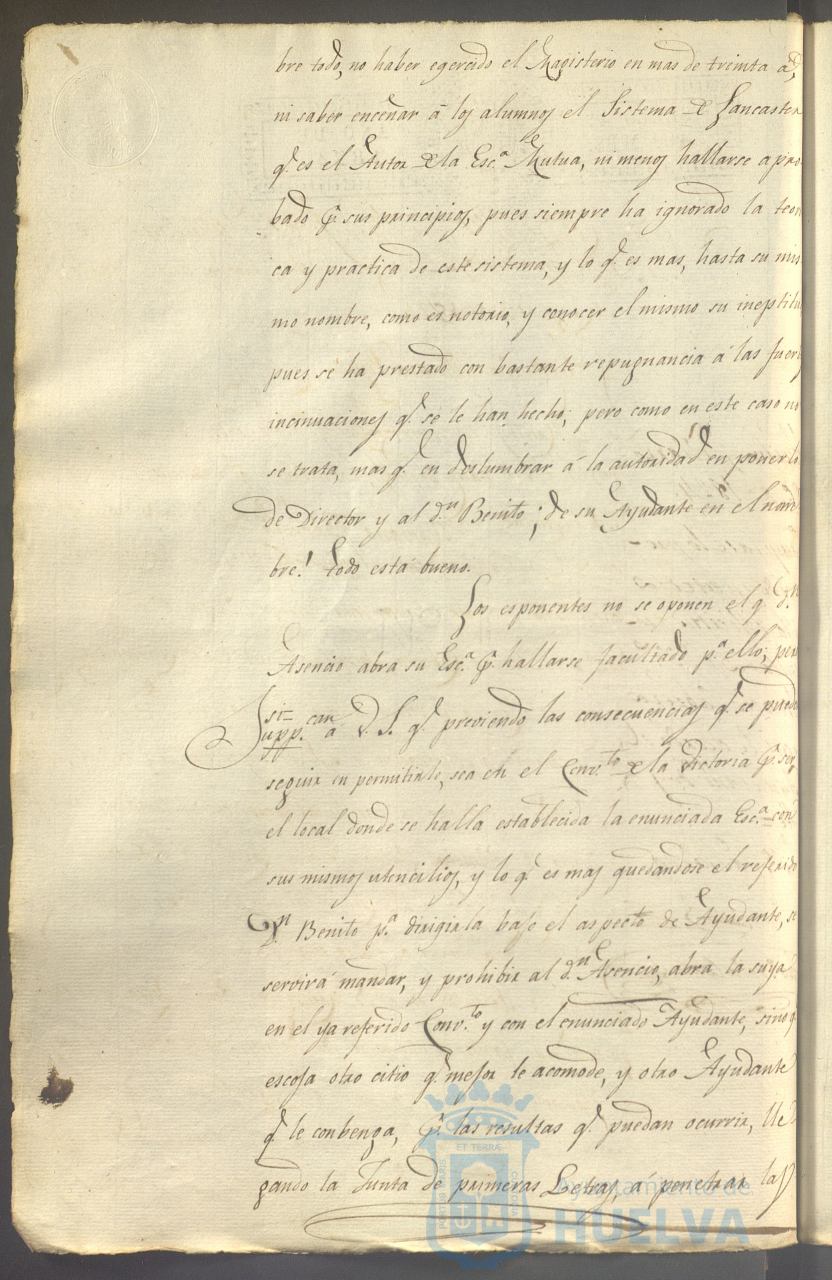 bre todo, no haber egercido el Magisterio en mas de treinta a.s,
ni saber enceñar á los alumnos el Sistema de Lancaster
q.e es el Autor de la Esc.a Mutua, ni menos hallarse apro
bado p.r sus principios, pues siempre ha ignorado la teori
ca y practica de este sistema, y lo q.e es mas, hasta su mis
mo nombre, como es notorio, y conocer el mismo su ineptitu
pues se ha prestado con bastante repugnancia á las fuer
incinuaciones q.e se le han hecho; pero como en este caso no
se trata, mas q.e en deslumbrar á la autoridad en ponerlo
de Director y al d.n Benito; de su Ayudante en el nom
bre! todo está bueno.
Los esponentes no se oponen el q.e d.n
Asencio abra su Esc.a p.r hallarse facultado p.a ello; pero
Supp.can á V.S. q.e previendo las consecuencias q.e se pued
seguir en permitirle, sea en el Conv.to de la Victoria p.r ser
el local donde se halla establecida la enunciada Esc.a con
sus mismos utencilios, y lo q.e es mas quedandose el referido
D.n Benito p.a dirigirla bajo el aspecto de Ayudante, se
servirá mandar, y prohibir al d.n Asencio, abra la suya
en el ya referido Conv.to y con el enunciado Ayudante, sino q.e
escoja otro citio q.e mejor le acomode, y otro Ayudante
q.e le conbenga, p.r las resultas q.e puedan ocurrir, lle
gando la Junta de primeras Letras, á penetrar las
PORTUS MARIS ET TERRÆ CUSTODIA
Ayuntamiento de
HUELVA